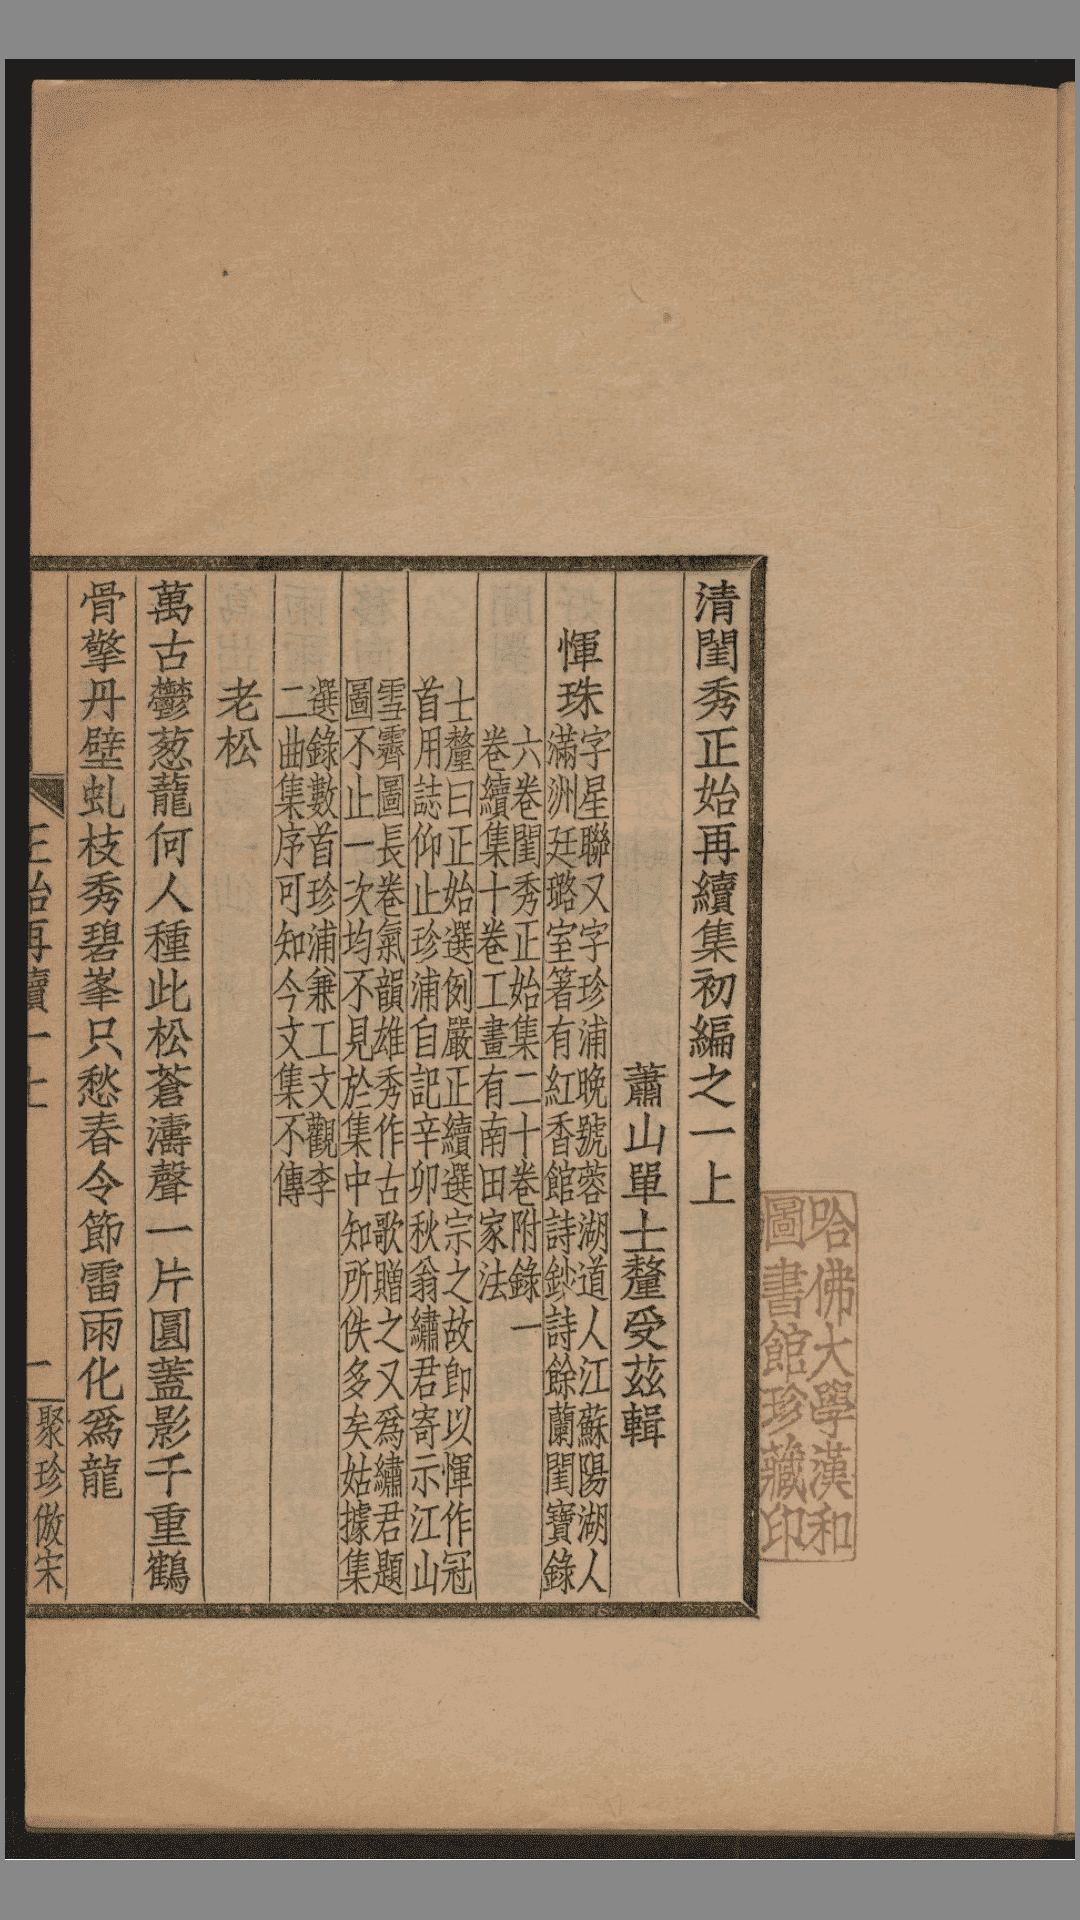 哈佛大學漢和
圖書館珍藏印
清閨秀正始再續集初編之一上
蕭山單士釐受茲輯
惲珠
字星聯又字珍浦晚號蓉湖道人江蘇陽湖人
滿洲廷璐室箸有紅香館詩鈔詩餘蘭閨寶錄
六卷閨秀正始集二十卷附錄一
卷續集十卷工畫有南田家法
士釐曰正始選例嚴正續選宗之故卽以惲作冠
首用誌仰止珍浦自記辛卯秋翁繡君寄示江山
雪霽圖長卷氣韻雄秀作古歌贈之又爲繡君題
圖不止一次均不見於集中知所佚多矣姑據集
選錄數首珍浦兼工文觀李
二曲集序可知今文集不傳
老松
萬古鬱葱蘢何人種此松蒼濤聲一片圓蓋影千重鶴
骨擎丹壁虬枝秀碧峯只愁春令節雷雨化爲龍
正始再續一上
一
聚珍倣宋